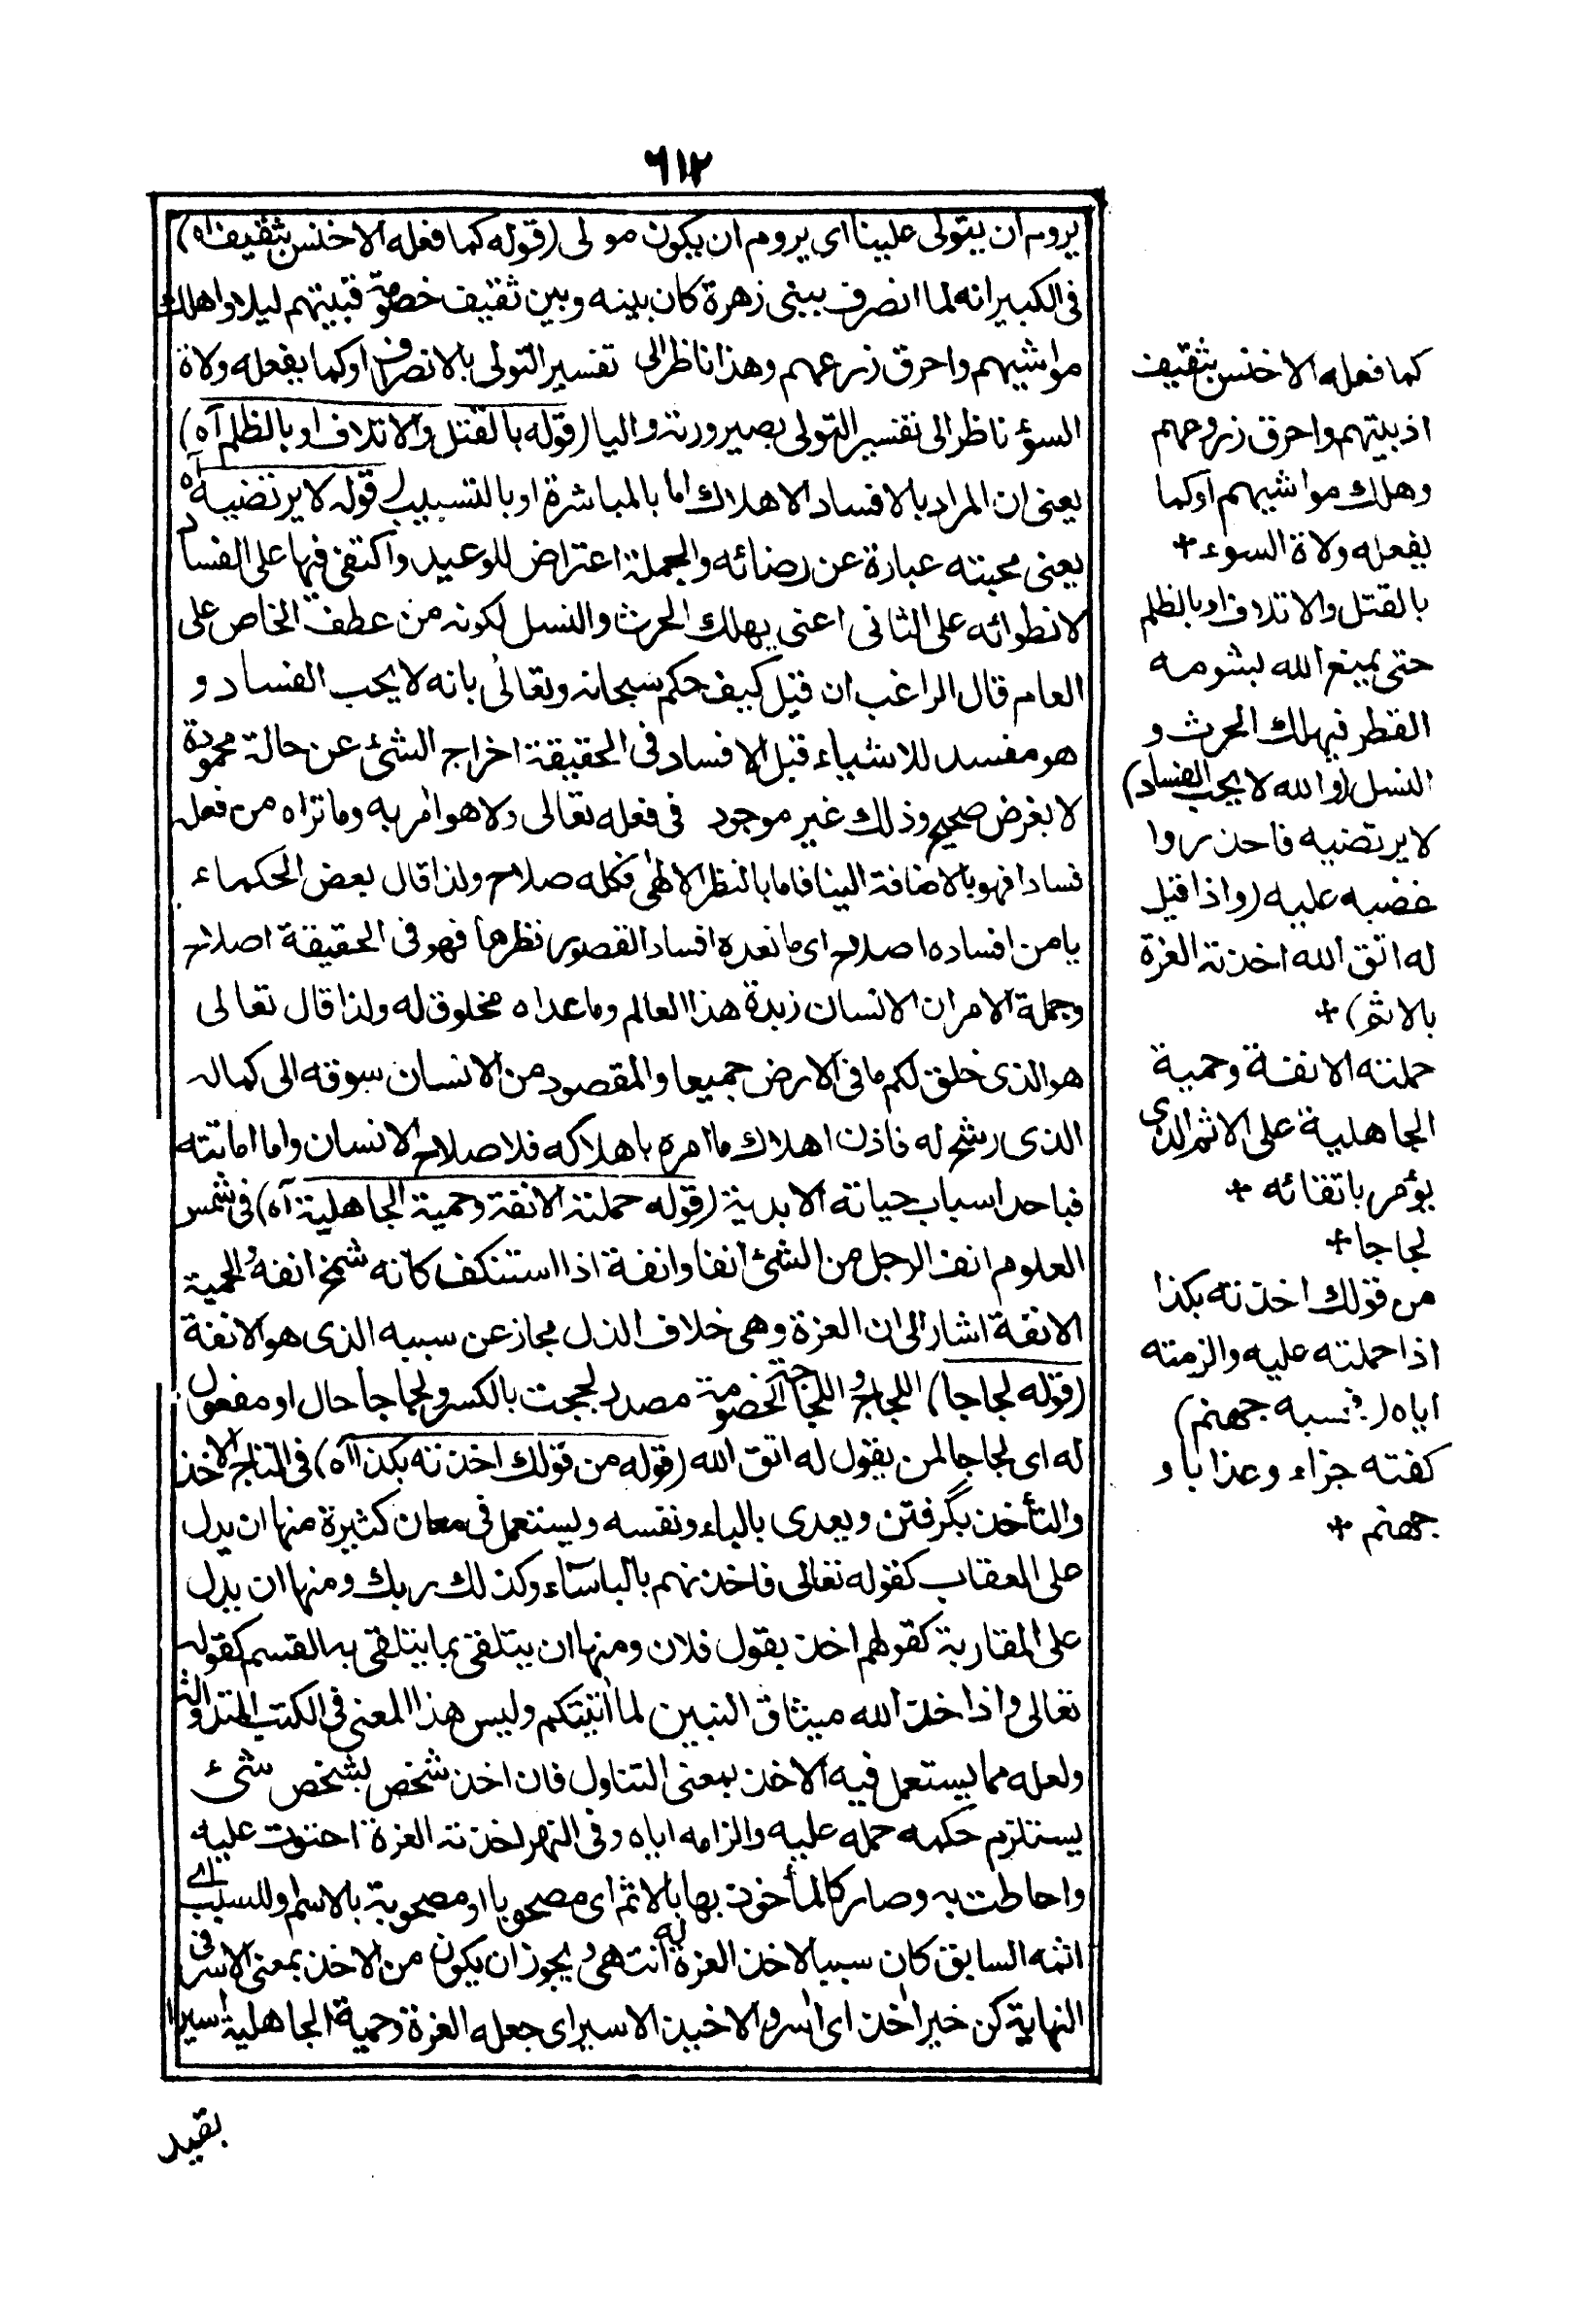 ٦١٢
يروم ان يتولى علينا اى يروم ان يكون مولى (قوله كما فعله الاخنس بثقيف اه)
فى الكبير انه لما انصرف ببنى زهرة كان بينه وبين ثقيف خصومة فبيتهم ليلا واهلك
مواشيهم واحرق زرعهم وهذا ناظر الى تفسير التولى بالانصراف او كما يفعله ولاة
السؤ ناظر الى تفسير التولى بصيرورته واليا (قوله بالقتل والاتلاف او بالظلم آه)
يعنى ان المراد بالافساد الاهلاك اما بالمباشرة او بالتسبيب (قوله لا يرتضيه آه
يعنى محبته عبارة عن رضائه والجملة اعتراض للوعيد واكتفى فيها على الفساد
لانطوائه على الثانى اعنى يهلك الحرث والنسل لكونه من عطف الخاص على
العام قال الراغب ان قيل كيف حكم سبحانه وتعالى بانه لا يحب الفساد و
هو مفسد للاشياء قبل الافساد فى الحقيقة اخراج الشئ عن حالة محمودة
لا بغرض صحيح وذلك غير موجود فى فعله تعالى ولا هو امر به وما تراه من فعله
فسادا فهو بالاضافة الينا فاما بالنظر الالهى فكله صلاح ولذا قال بعض الحكماء
يا من افساده اصلاح اى ما نعده افساد القصور نظرها فهو فى الحقيقة اصلاح
وجملة الامر ان الانسان زبدة هذا العالم وما عداه مخلوق له ولذا قال تعالى
هو الذى خلق لكم ما فى الارض جميعا والمقصود من الانسان سوقه الى كماله
الذى رشح له فاذن اهلاك ما امره باهلاكه فلاصلاح الانسان واما اماتته
فباحد اسباب حياته الابدية (قوله حملته الانفة وحمية الجاهلية آه) فى شمس
العلوم انف الرجل من الشئ انفا وانفة اذا استنكف كانه شمخ انفه والحمية
الانفة اشار الى ان العزة وهى خلاف الذل مجاز عن سببه الذى هو الانفة
(قوله لجاجا) اللجاج واللجاجة الخصومة مصدر لججت بالكسر ولجاجا حال او مفعول
له اى لجاجا لمن يقول له اتق الله (قوله من قولك اخذته بكذا اه) فى التاج الاخذ
والتأخذ بگرفتن ويعدى بالباء ونفسه ويستعمل فى معان كثيرة منها ان يدل
على العقاب كقوله تعالى فاخذنهم بالباساء وكذلك ربك ومنها ان يدل
على المقاربة كقولهم اخذ يقول فلان ومنها ان يتلقى بما يتلقى به القسم كقوله
تعالى واذ اخذ الله ميثاق النبين لما اتيتكم وليس هذا المعنى فى الكتب المتداولة
ولعله مما يستعمل فيه الاخذ بمعنى التناول فان اخذ شخص بشخص شئ
يستلزم حكمه حمله عليه والزامه اياه وفى النهر اخذته العزة احتوت عليه
واحاطت به وصار كالمأخوذ بها بالاثم اى مصحوبا او مصحوبة بالاسم او للسبب اے
اثمه السابق كان سببا لاخذ العزة له انتهى ويجوز ان يكون من الاخذ بمعنى الاسر فى
النهاية كن خير اخذ اى اسر والاخيذ الاسير اى جعله العزة وحمية الجاهلية اسيرا
بقيد
كما فعله الاخنس بثقيف
اذ بيتهم واحرق زروعهم
وهلك مواشيهم او كما
يفعله ولاة السوء +
بالقتل والاتلاف او بالظلم
حتى يمنع الله بشومه
القطر فيهلك الحرث و
النسل (والله لا يحب الفساد)
لا يرتضيه فاحذروا
غضبه عليه (واذا قيل
له اتق الله اخذته العزة
بالاثم) +
حملته الانفة وحمية
الجاهلية على الاثم الذى
يؤمر باتقائه +
لجاجا +
من قولك اخذته بكذا
اذا حملته عليه والزمته
اياه (فحسبه جهنم)
كفته جزاء وعذابا و
جهنم +